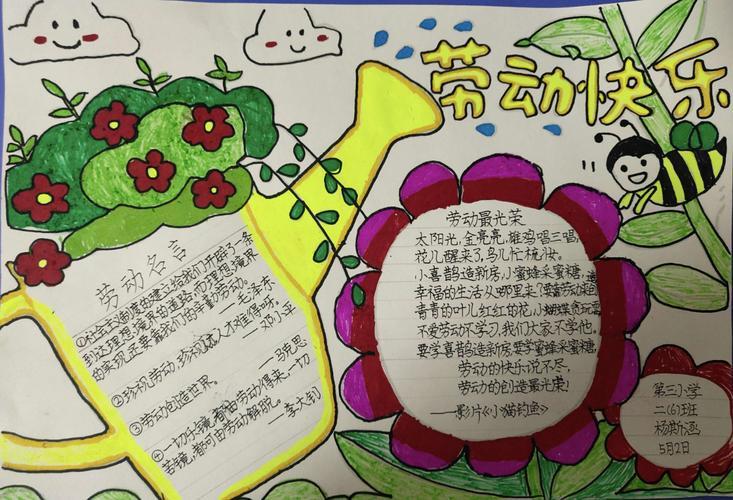 劳动快乐
劳动名言
①社会主义制度的建立给我们开辟了一条
到达理想境界的道路,而理想境界
的实现还要靠我们的辛勤劳动。
——毛泽东
——邓小平
②珍视劳动,珍视人才,人才难得呀。
——马克思
③劳动创造世界。
④一切乐境,都由劳动得来,一切
苦境,都可由劳动解脱。
——李大钊
劳动最光荣
太阳光,金亮亮,雄鸡唱三唱,
花儿醒来了,鸟儿忙梳妆。
小喜鹊造新房,小蜜蜂采蜜糖,
幸福的生活从哪里来?要靠劳动来创造
青青的叶儿红红的花,小蝴蝶贪玩耍
不爱劳动不学习,我们大家不学他。
要学喜鹊造新房,要学蜜蜂采蜜糖,
劳动的快乐说不尽,
劳动的创造最光荣!
——影片《小猫钓鱼》
第三小学
二(6)班
杨斯涵
5月2日